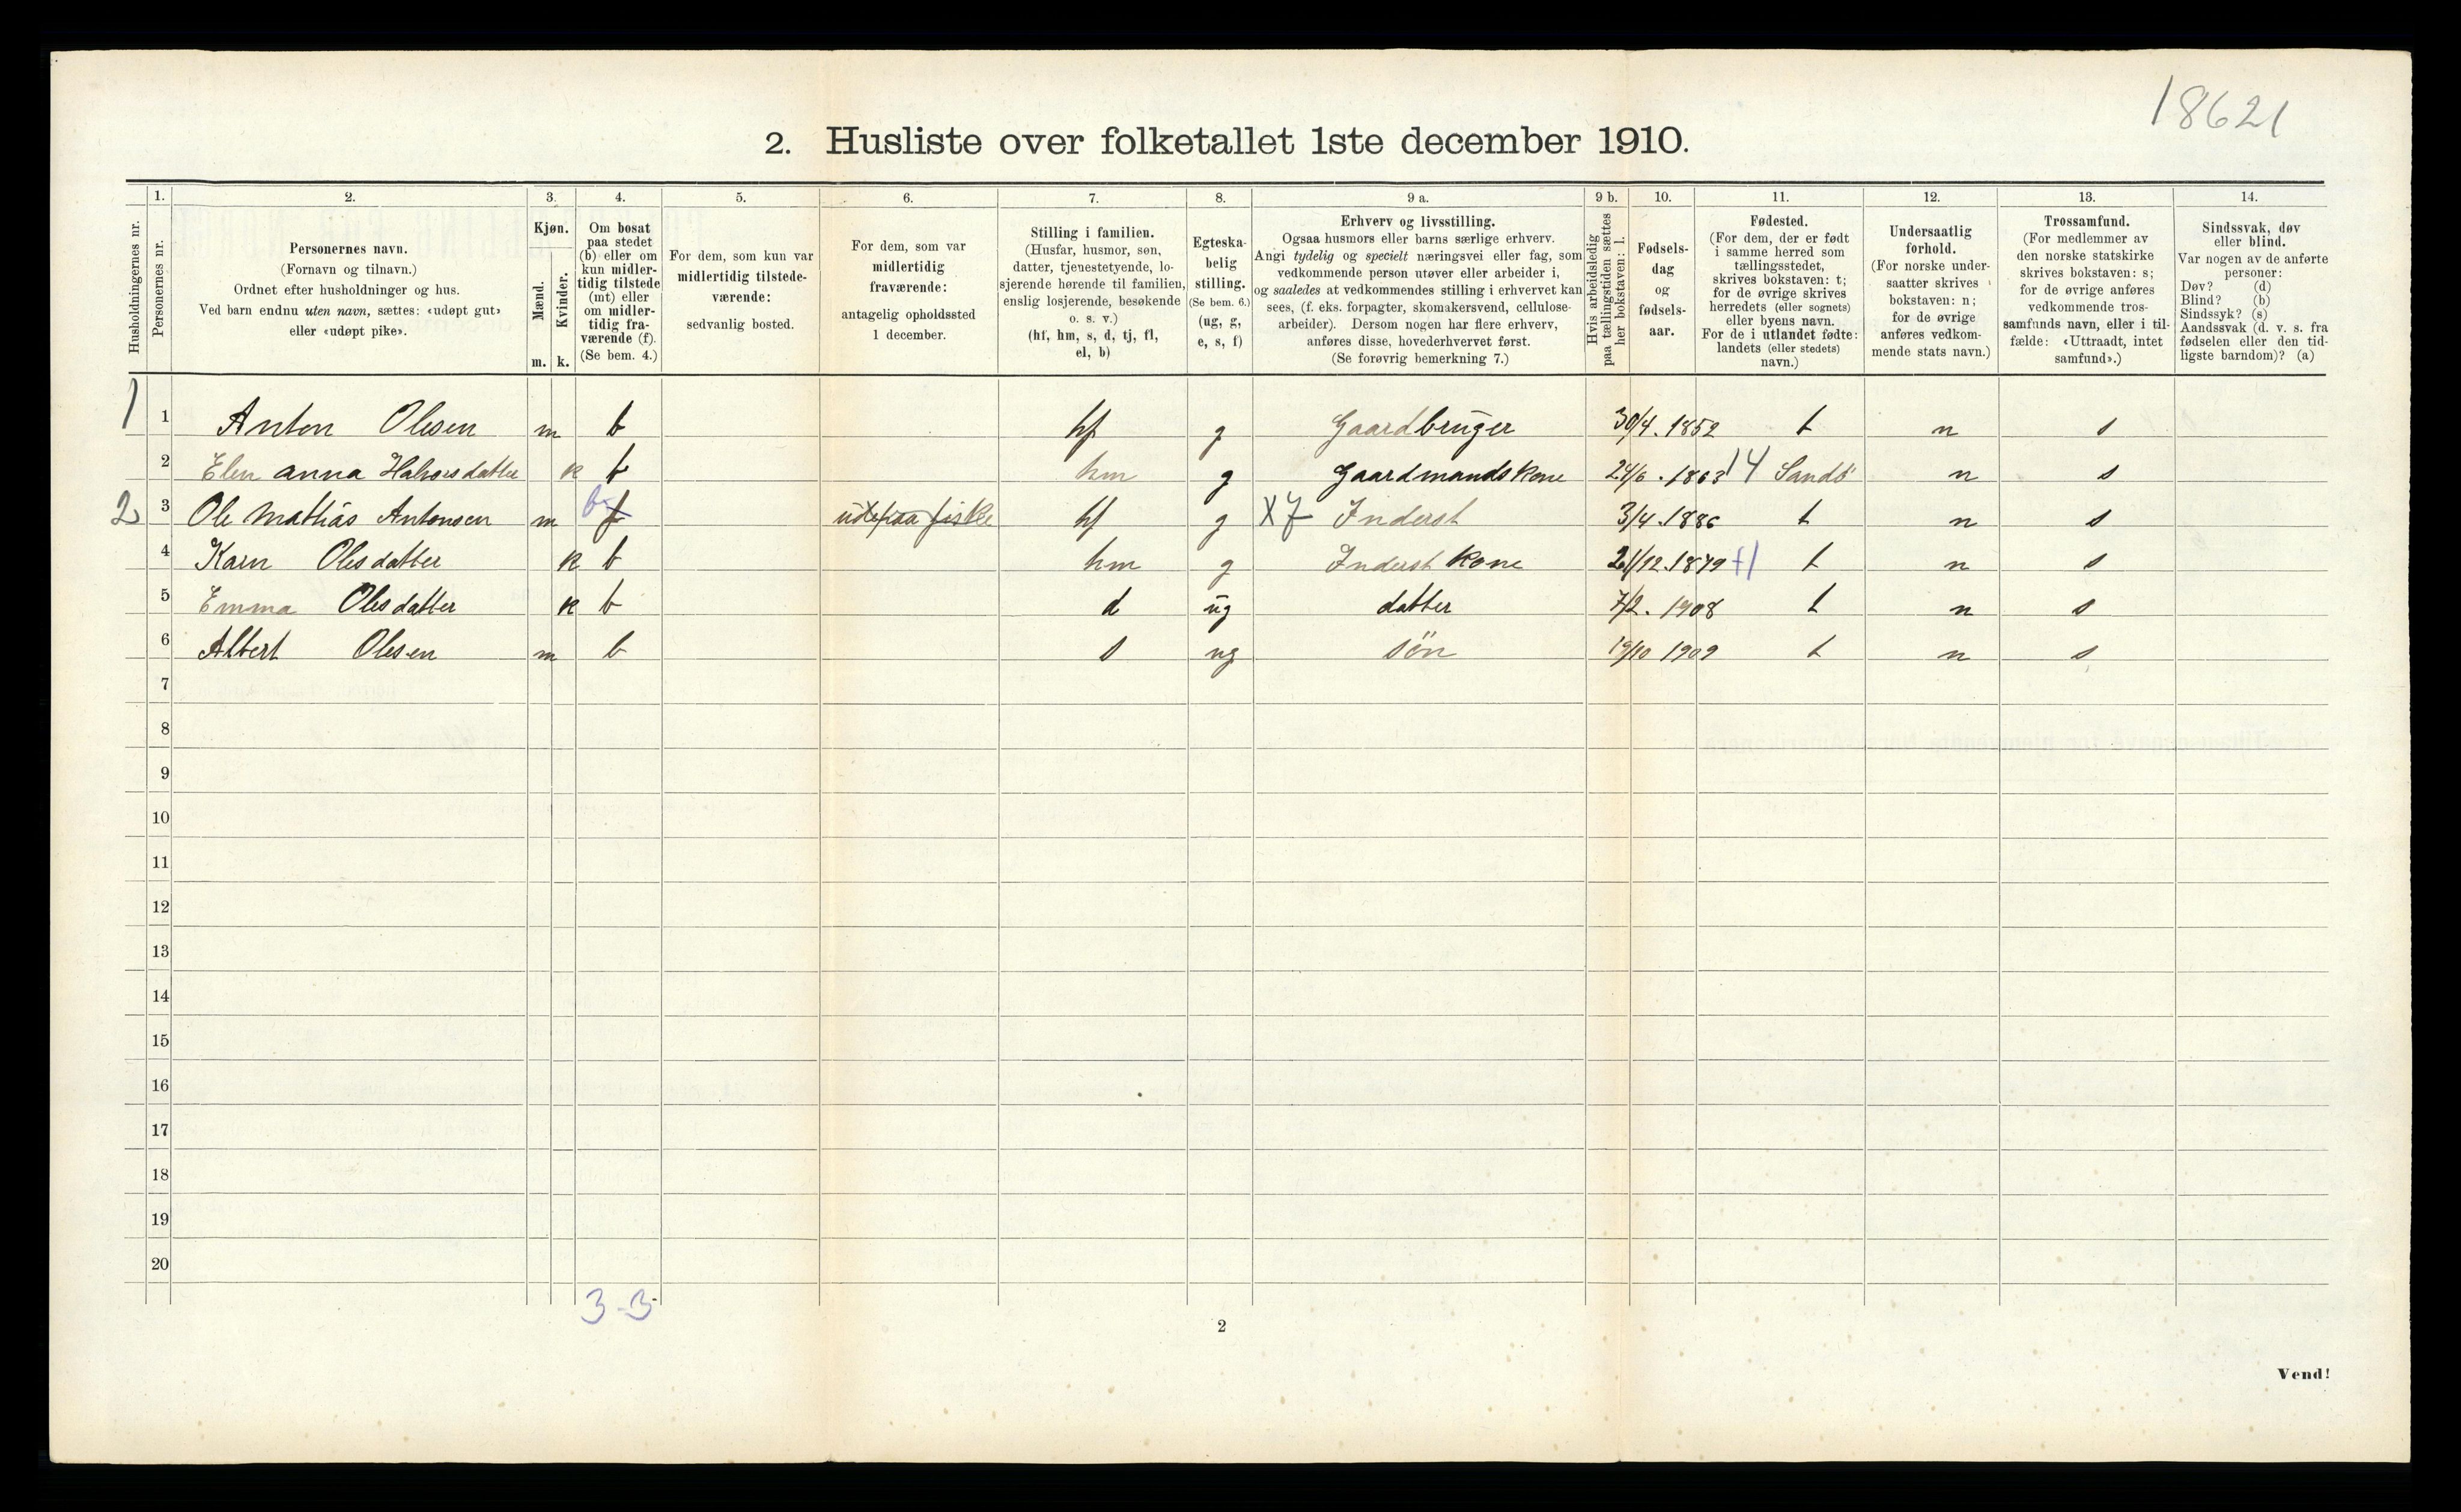 18621
2. Husliste over folketallet 1ste december 1910.
Husholdningernes nr.
1.
Personernes nr.
2.
Personernes navn.
(Fornavn og tilnavn.)
Ordnet efter husholdninger og hus.
Ved barn endnu uten navn, sættes: «udøpt gut»
eller «udøpt pike».
3.
Kjøn.
Mænd.
Kvinder.
m. k.
4.
Om bosat
paa stedet
(b) eller om
kun midler-
tidig tilstede
(mt) eller
om midler-
tidig fra-
værende (f).
(Se bem. 4.)
5.
For dem, som kun var
midlertidig tilstede-
værende:
sedvanlig bosted.
6.
For dem, som var
midlertidig
fraværende:
antagelig opholdssted
1 december.
7.
Stilling i familien.
(Husfar, husmor, søn,
datter, tjenestetyende, lo-
sjerende hørende til familien,
enslig losjerende, besøkende
o. s. v.)
(hf, hm, s, d, tj, fl,
el, b)
8.
Egteska-
belig
stilling.
(Se bem. 6.)
(ug, g,
e, s, f)
9 a.
Erhverv og livsstilling.
Ogsaa husmors eller barns særlige erhverv.
Angi tydelig og specielt næringsvei eller fag, som
vedkommende person utøver eller arbeider i,
og saaledes at vedkommendes stilling i erhvervet kan
sees, (f. eks. forpagter, skomakersvend, cellulose-
arbeider). Dersom nogen har flere erhverv,
anføres disse, hovederhvervet først.
(Se forøvrig bemerkning 7.)
9 b.
Hvis arbeidsledig
paa tællingstiden sættes
her bokstaven: l.
10.
Fødsels-
dag
og
fødsels-
aar.
11.
Fødested.
(For dem, der er født
i samme herred som
tællingsstedet,
skrives bokstaven: t;
for de øvrige skrives
herredets (eller sognets)
eller byens navn.
For de i utlandet fødte:
landets (eller stedets)
navn.)
12.
Undersaatlig
forhold.
(For norske under-
saatter skrives
bokstaven: n;
for de øvrige
anføres vedkom-
mende stats navn.)
13.
Trossamfund.
(For medlemmer av
den norske statskirke
skrives bokstaven: s;
for de øvrige anføres
vedkommende tros-
samfunds navn, eller i til-
fælde: «Uttraadt, intet
samfund».)
14.
Sindssvak, døv
eller blind.
Var nogen av de anførte
personer:
Døv? (d)
Blind? (b)
Sindssyk? (s)
Aandssvak (d. v. s. fra
fødselen eller den tid-
ligste barndom)? (a)
1 1 Anton Olesen m b hf g Gaardbruger 30/4. 1852 t n s
2 Elen anna Halvorsdatter k b hm g Gaardmandskone 24/6. 1863 14 Sandö n s
2 3 Ole Mathias Antonsen m b f ude paa fiske hf g X7 Inderst 3/4. 1886 t n s
4 Karn Olesdatter k b hm g Inderst Kone 21/12. 1879 +1 t n s
5 Emma Olesdatter k b d ug datter 7/2. 1908 t n s
6 Albert Olesen m b s ug sön 19/10 1909 t n s
7
8
9
10
11
12
13
14
15
16
17
18
19
20
3-3
2
Vend!